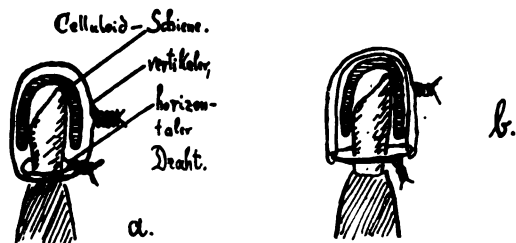 Celluloid-Schiene.
vertikaler,
horizon-
taler
Draht.
a.
b.